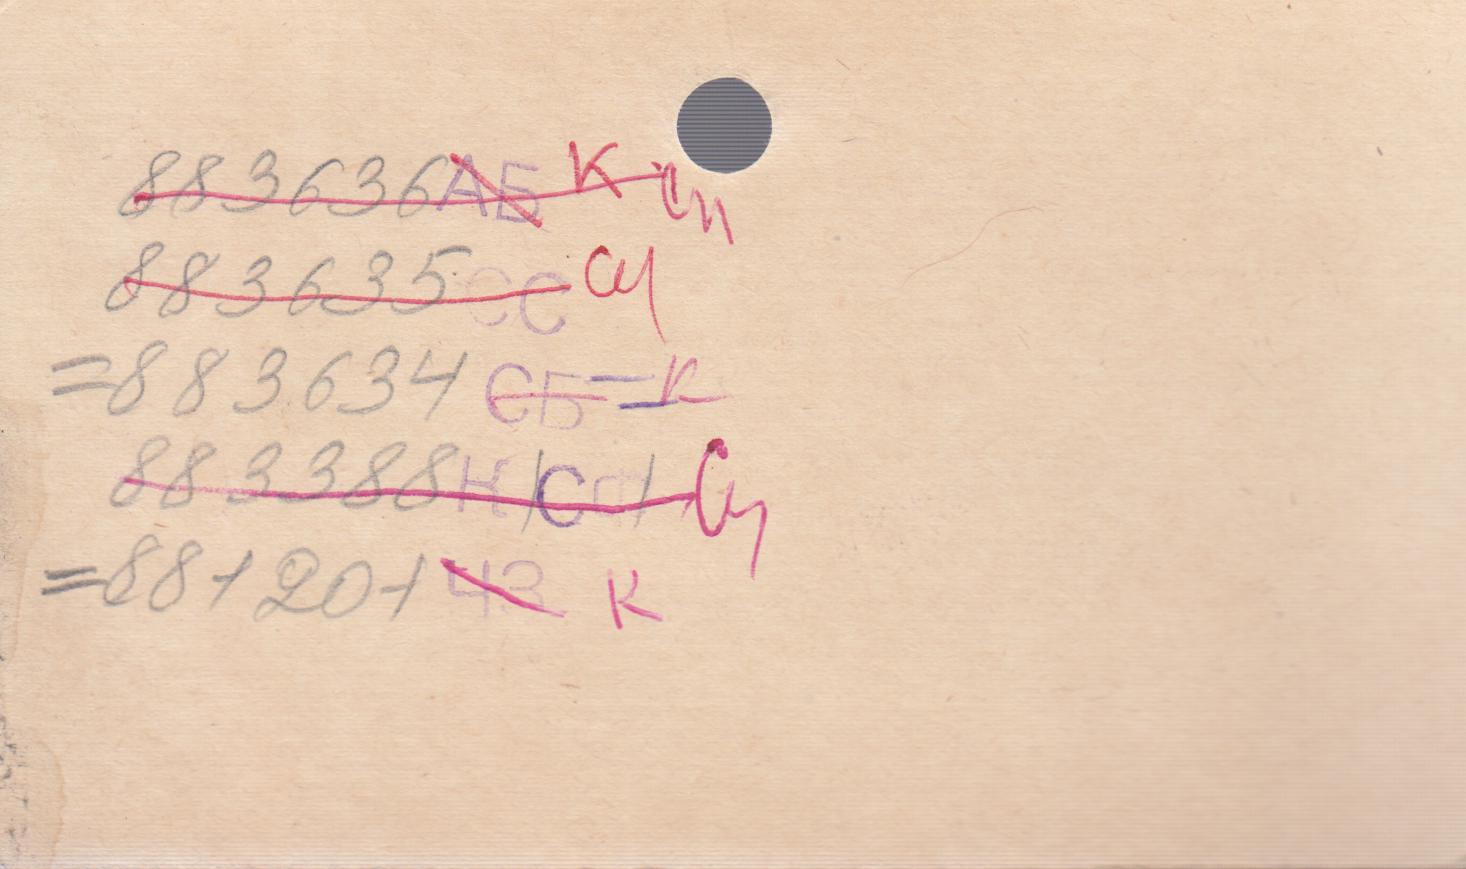 883636 АБ К Сп
883635 СС Сп
=883634 СБ = К
883388 Н/СФ/ Сп
=881201 ЧЗ К